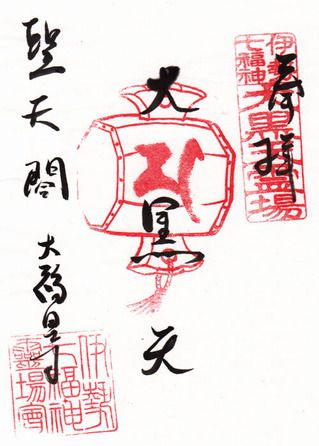 奉拝
伊勢
七福神
大黒天霊場
大黒天
聖天閣
大福田寺
伊勢
七福神
靈場會